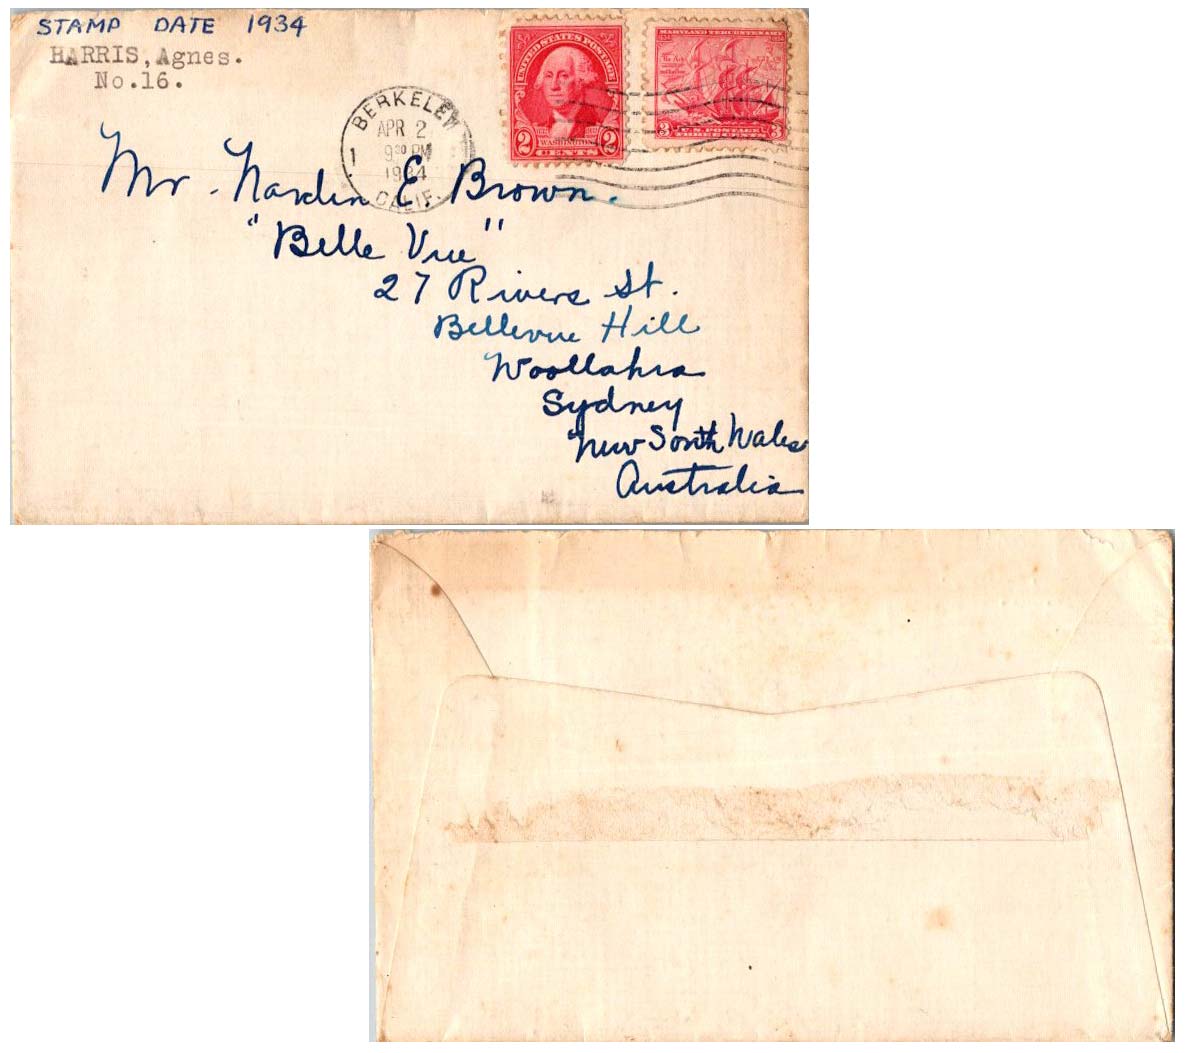 STAMP DATE 1934
HARRIS, Agnes.
No.16.
UNITED STATES POSTAGE
2 WASHINGTON 2
CENTS
MARYLAND TERCENTENARY
1634 1934
The Ark
3 U.S. POSTAGE 3
THREE CENTS
BERKELEY
APR 2
9 30 PM
1934
CALIF.
1
Mr. Nardin E. Brown.
"Belle Vue"
27 Rivers St.
Bellevue Hill
Woollahra
Sydney
New South Wales
Australia